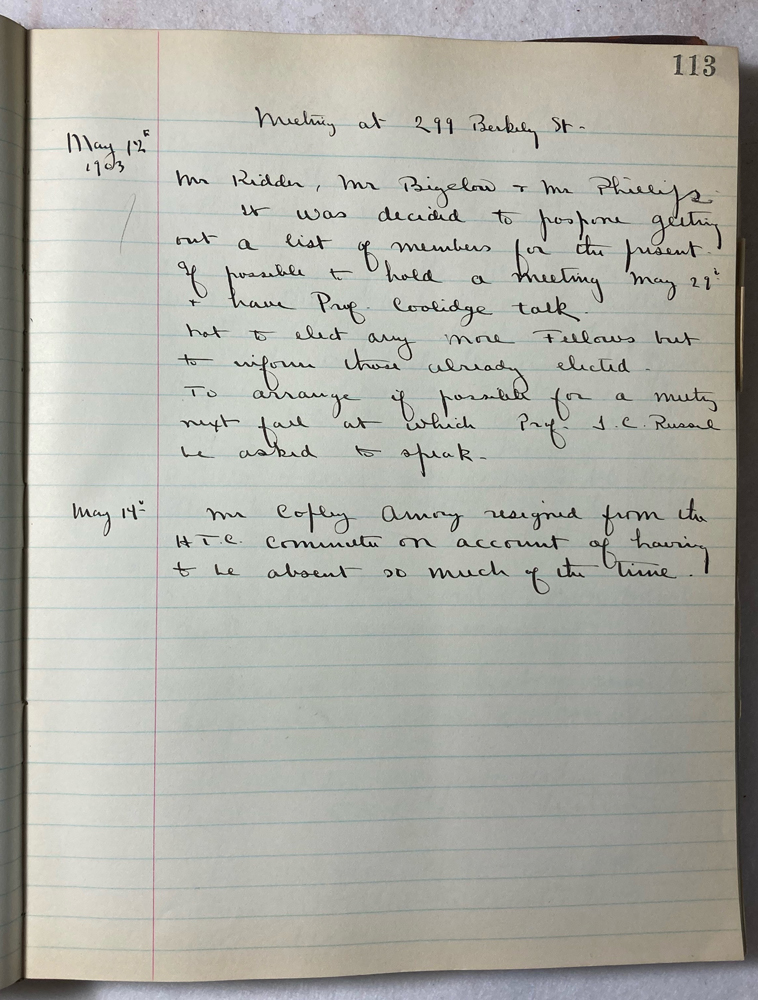 113
Meeting at 299 Berkely St -
May 12th
1903
Mr Kidder, Mr Bigelow + Mr Phillips.
It was decided to pospone getting
out a list of members for the present.
If possible to hold a meeting May 29th
+ have Prof. Coolidge talk.
Not to elect any more Fellows but
to inform those already elected.
To arrange if possible for a meeting
next fall at which Prof. I. C. Russel
be asked to speak.
May 14th
Mr Copley Amory resigned from the
H T.C. committee on account of having
to be absent so much of the time.